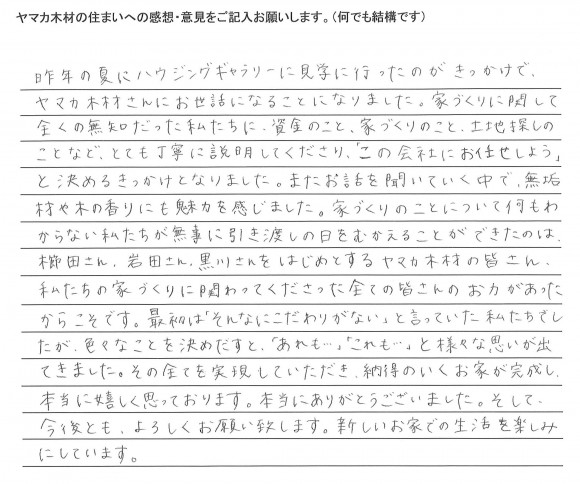 ヤマカ木材の住まいへの感想・意見をご記入お願いします。（何でも結構です）
昨年の夏にハウジングギャラリーに見学に行ったのがきっかけで、
ヤマカ木材さんにお世話になることになりました。家づくりに関して
全くの無知だった私たちに、資金のこと、家づくりのこと、土地探しの
ことなど、とても丁寧に説明してくださり、「この会社にお任せしよう」
と決めるきっかけとなりました。またお話を聞いていく中で、無垢
材や木の香りにも魅力を感じました。家づくりのことについて何もわ
からない私たちが無事に引き渡しの日をむかえることができたのは、
櫛田さん、岩田さん、黒川さんをはじめとするヤマカ木材の皆さん、
私たちの家づくりに関わってくださった全ての皆さんのお力があった
からこそです。最初は「そんなにこだわりがない」と言っていた私たちでし
たが、色々なことを決めだすと、「あれも…」「これも…」と様々な思いが出
てきました。その全てを実現していただき、納得のいくお家が完成し、
本当に嬉しく思っております。本当にありがとうございました。そして、
今後とも、よろしくお願い致します。新しいお家での生活を楽しみ
にしています。